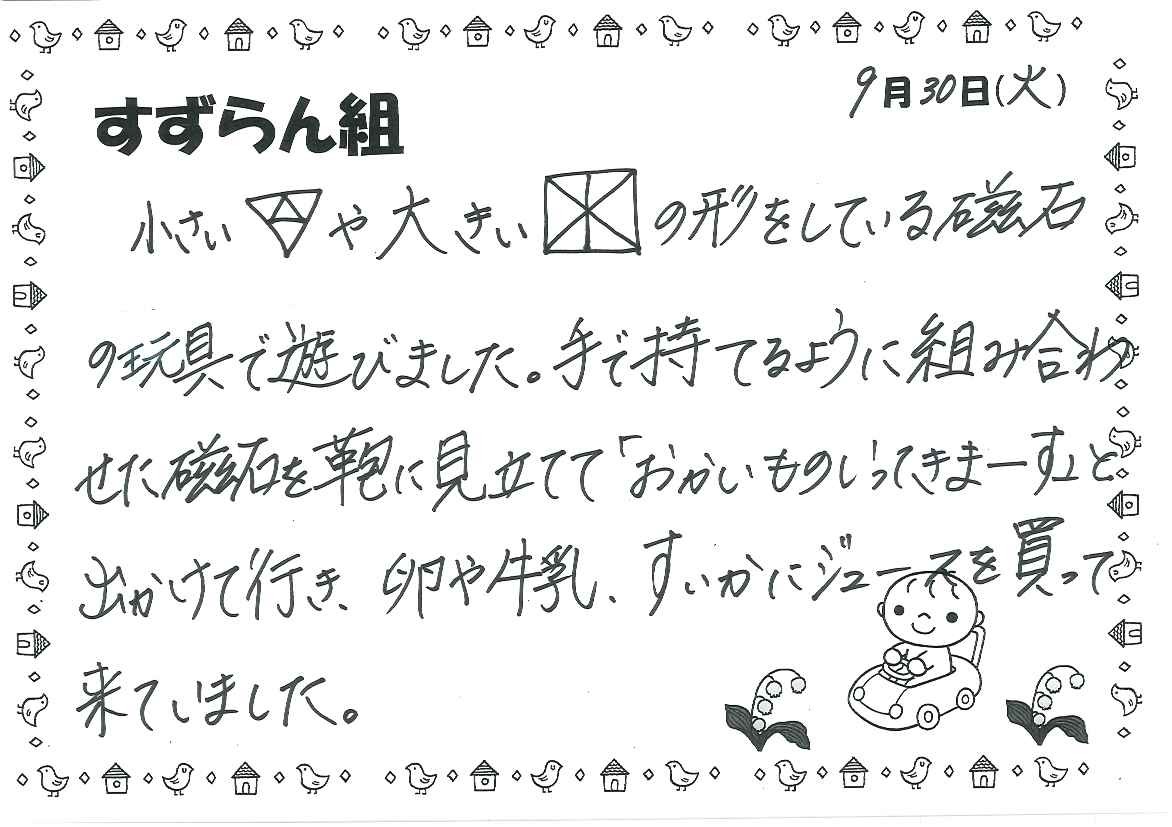 9月30日(火)
すずらん組
小さい や大きい の形をしている磁石
の玩具で遊びました。手で持てるように組み合わ
せた磁石を鞄に見立てて「おかいものいってきまーす」と
出かけて行き、卵や牛乳、すいかにジュースを買って
来ていました。